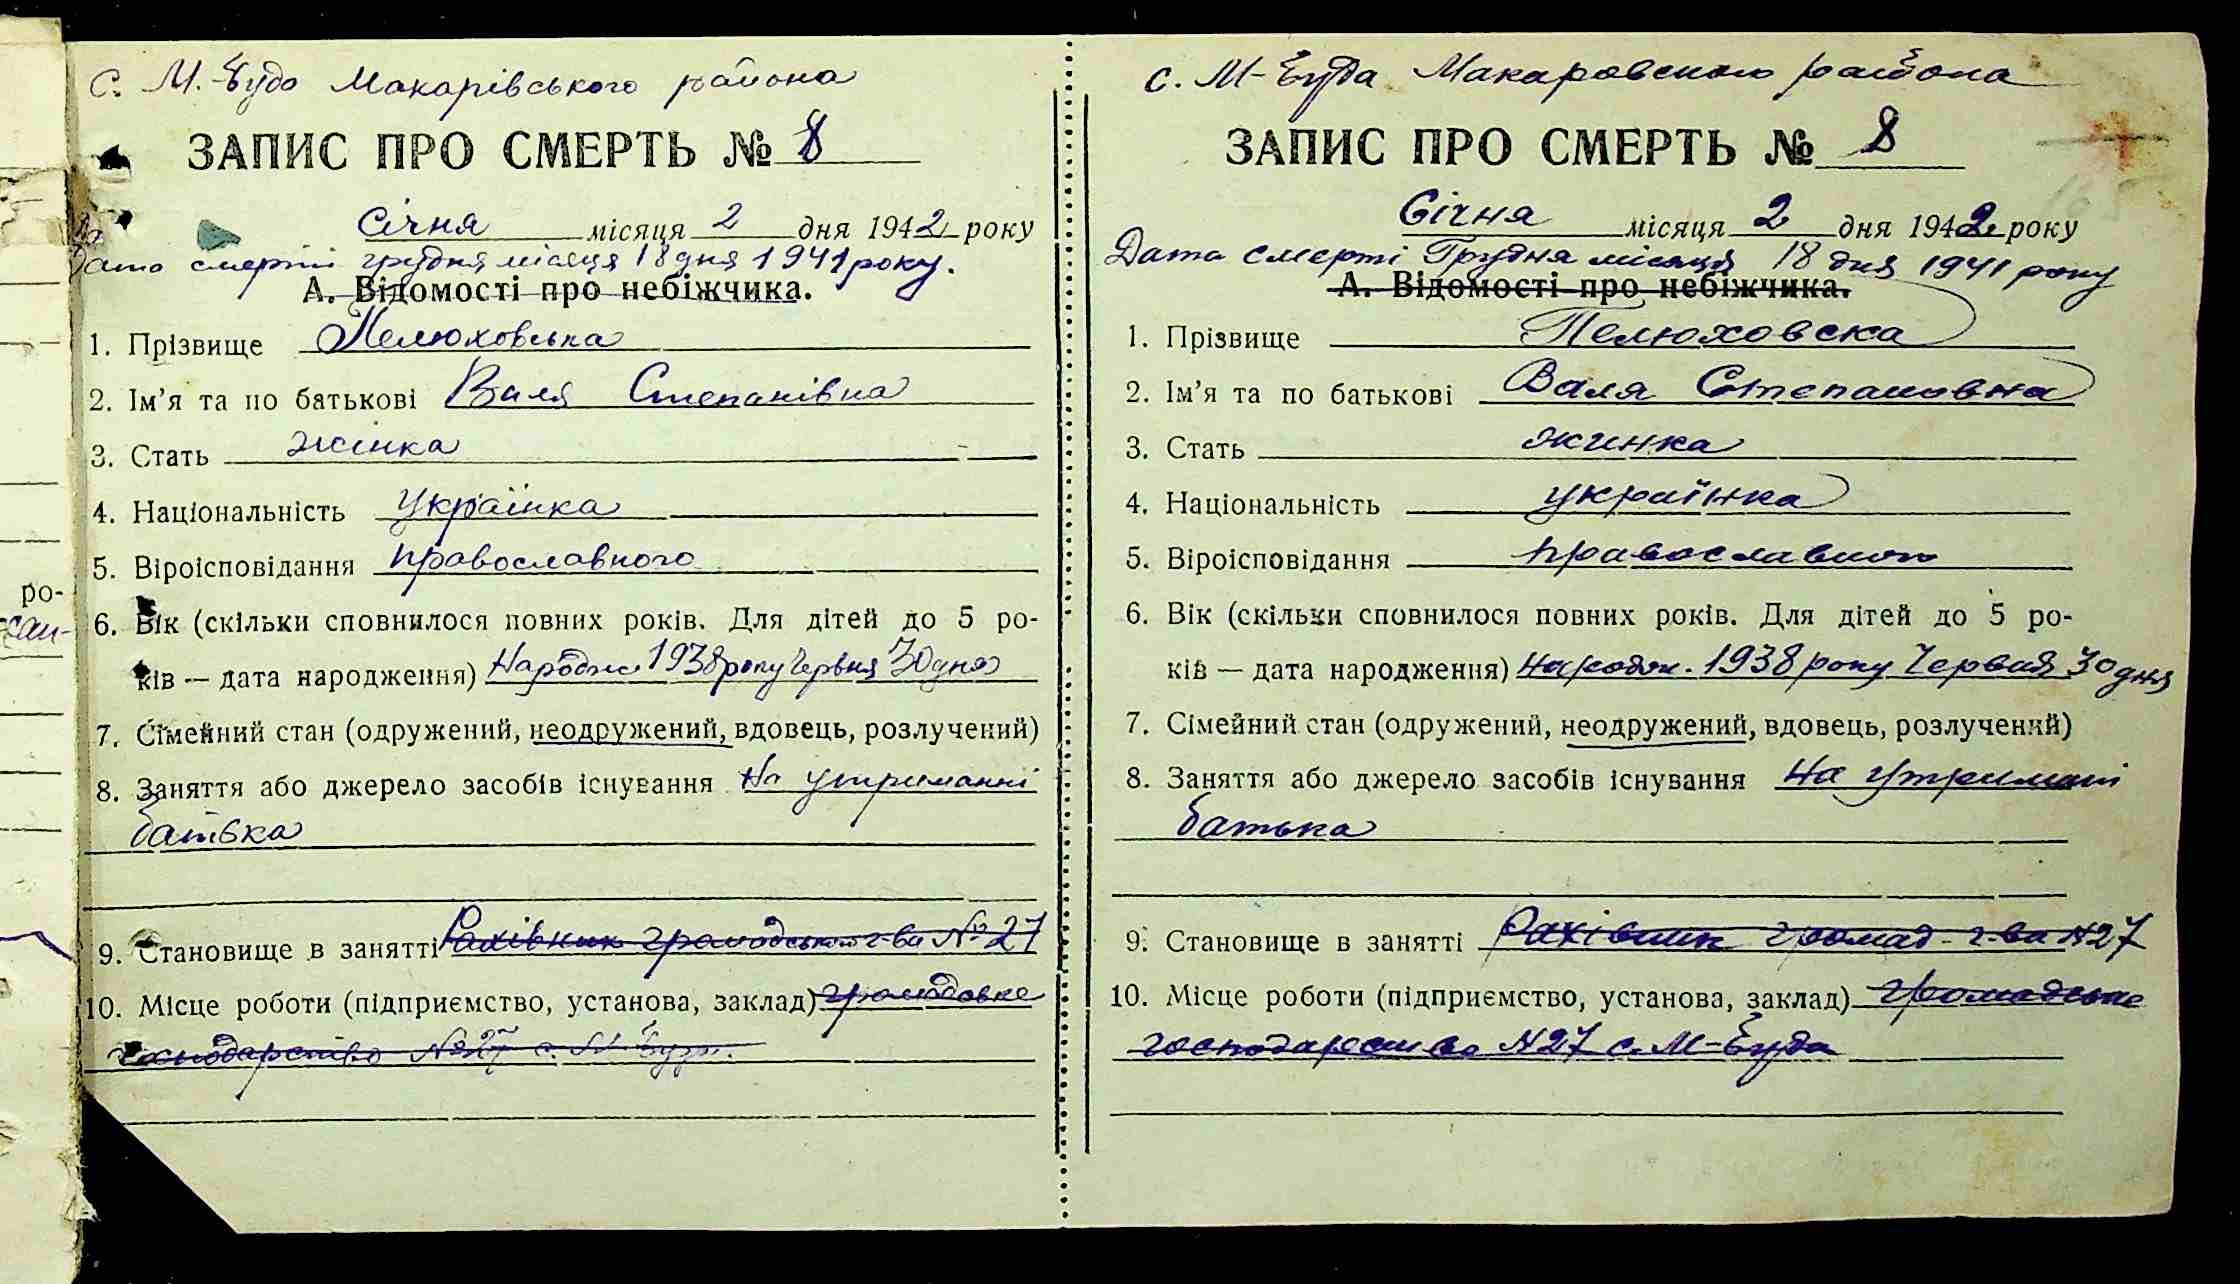 ро-
с. М.-Буда Макарівського района
ЗАПИС ПРО СМЕРТЬ № 8
січня місяця 2 дня 1942 року
Дата смерті грудня місяця 18 дня 1941 року.
А. Відомості про небіжчика.
1. Прізвище Пелюховська
2. Ім'я та по батькові Валя Степанівна
3. Стать жінка
4. Національність українка
5. Віроісповідання православного
6. Вік (скільки сповнилося повних років. Для дітей до 5 ро-
ків — дата народження) Народж 1938 року Червня 30 дня
7. Сімейний стан (одружений, неодружений, вдовець, розлучений)
8. Заняття або джерело засобів існування На утриманні
батька
9. Становище в занятті Рахівник громадського г-ва № 27
10. Місце роботи (підприємство, установа, заклад) громадське
господарство № 27 с. М-Буда.
с. М-Буда Макаровского района
ЗАПИС ПРО СМЕРТЬ № 8
Січня місяця 2 дня 1942 року
Дата смерті Грудня місяця 18 дня 1941 року
А. Відомості про небіжчика.
1. Прізвище Пелюховска
2. Ім'я та по батькові Валя Степановна
3. Стать жинка
4. Національність українка
5. Віроісповідання православного
6. Вік (скільки сповнилося повних років. Для дітей до 5 ро-
ків — дата народження) Народж. 1938 року Червня 30 дня
7. Сімейний стан (одружений, неодружений, вдовець, розлучений)
8. Заняття або джерело засобів існування На утримані
батька
9. Становище в занятті Рахівник громад. г-ва №27
10. Місце роботи (підприємство, установа, заклад) громадське
господарство №27 с. М-Буда